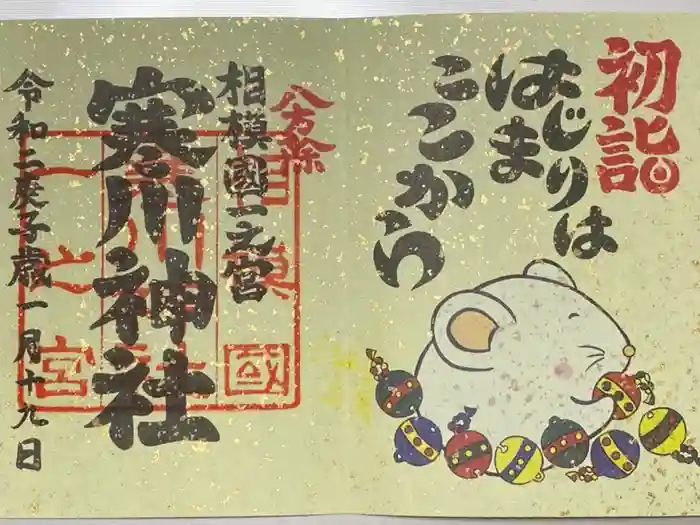 初詣
はじまりは
ここから
八方除
相模國一之宮
寒川神社
令和二庚子歳一月十九日
相模國
一之宮